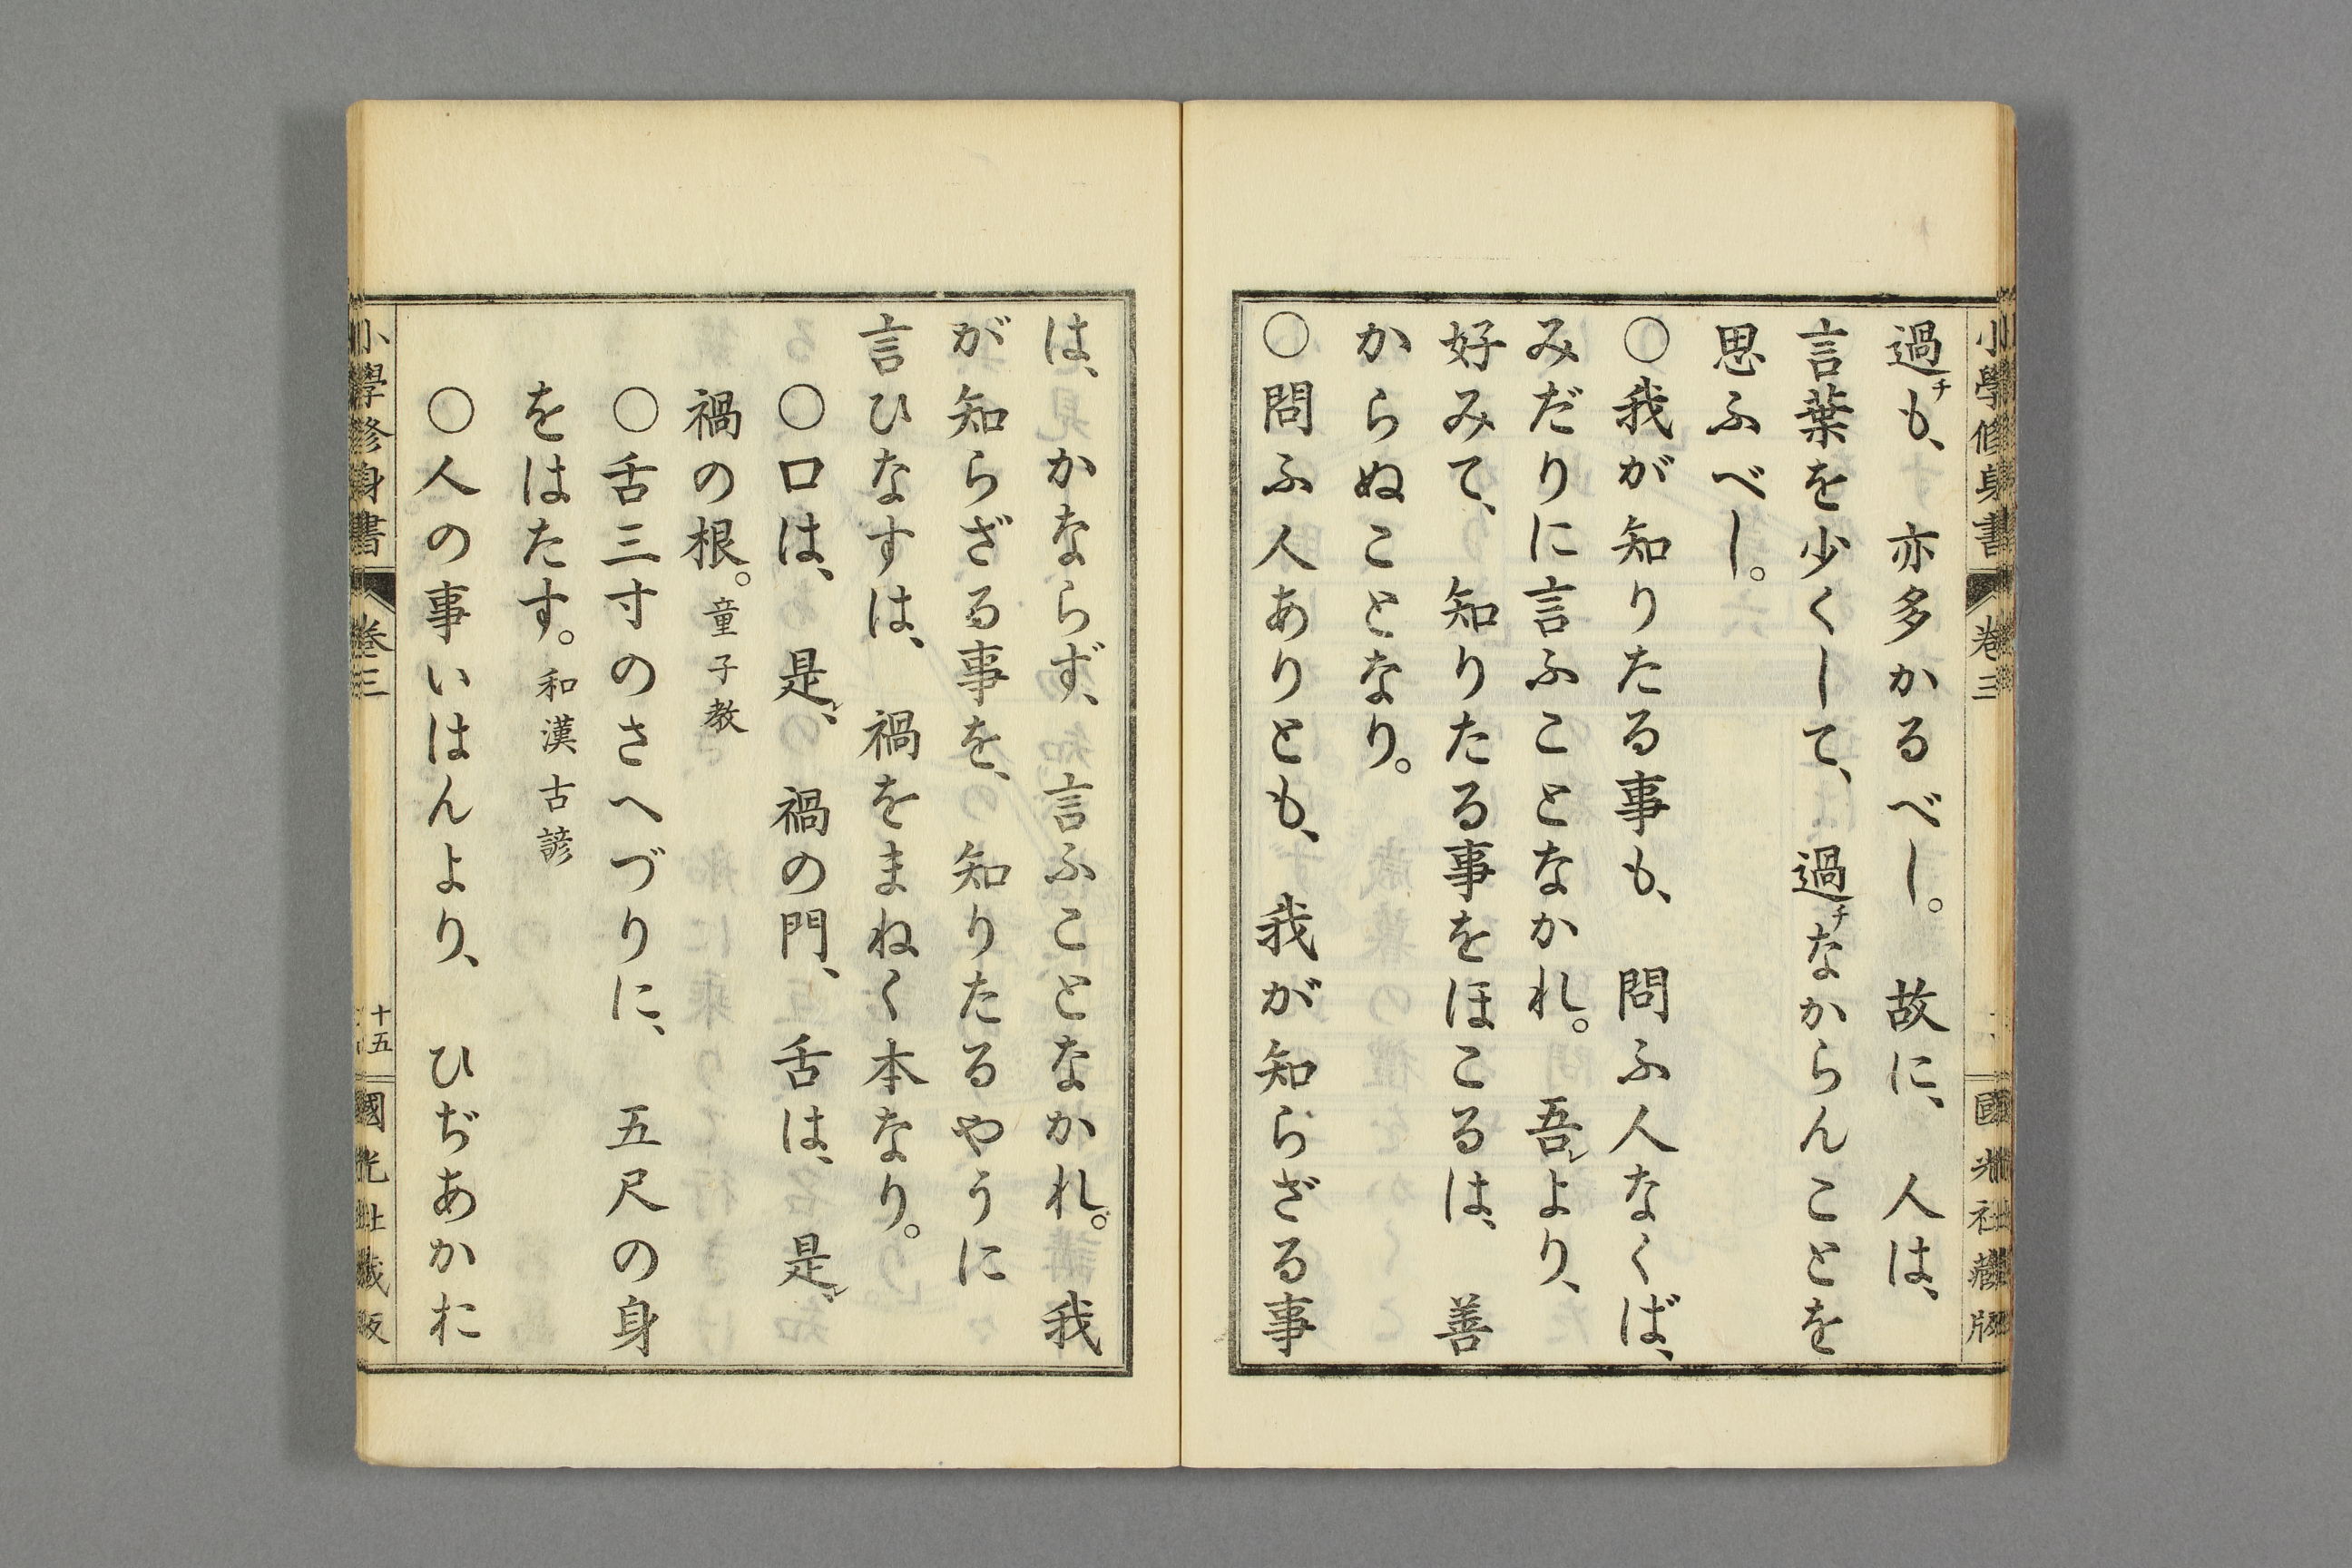 小學修身書 卷三 國光社藏版
過チも、亦多かるべし。故に、人は、
言葉を少くして、過チなからんことを
思ふべし。
○我が知りたる事も、問ふ人なくば、
みだりに言ふことなかれ。吾レより、
好みて、知りたる事をほこるは、善
からぬことなり。
○問ふ人ありとも、我が知らざる事
は、かならず、言ふことなかれ。我
が知らざる事を、知りたるやうに
言ひなすは、禍をまねく本なり。
○口は、是レ、禍の門、舌は、是レ、
禍の根。童子教
○舌三寸のさへづりに、五尺の身
をはたす。和漢古諺
○人の事いはんより、ひぢあかお
小學修身書 卷三 十五 國光社藏版